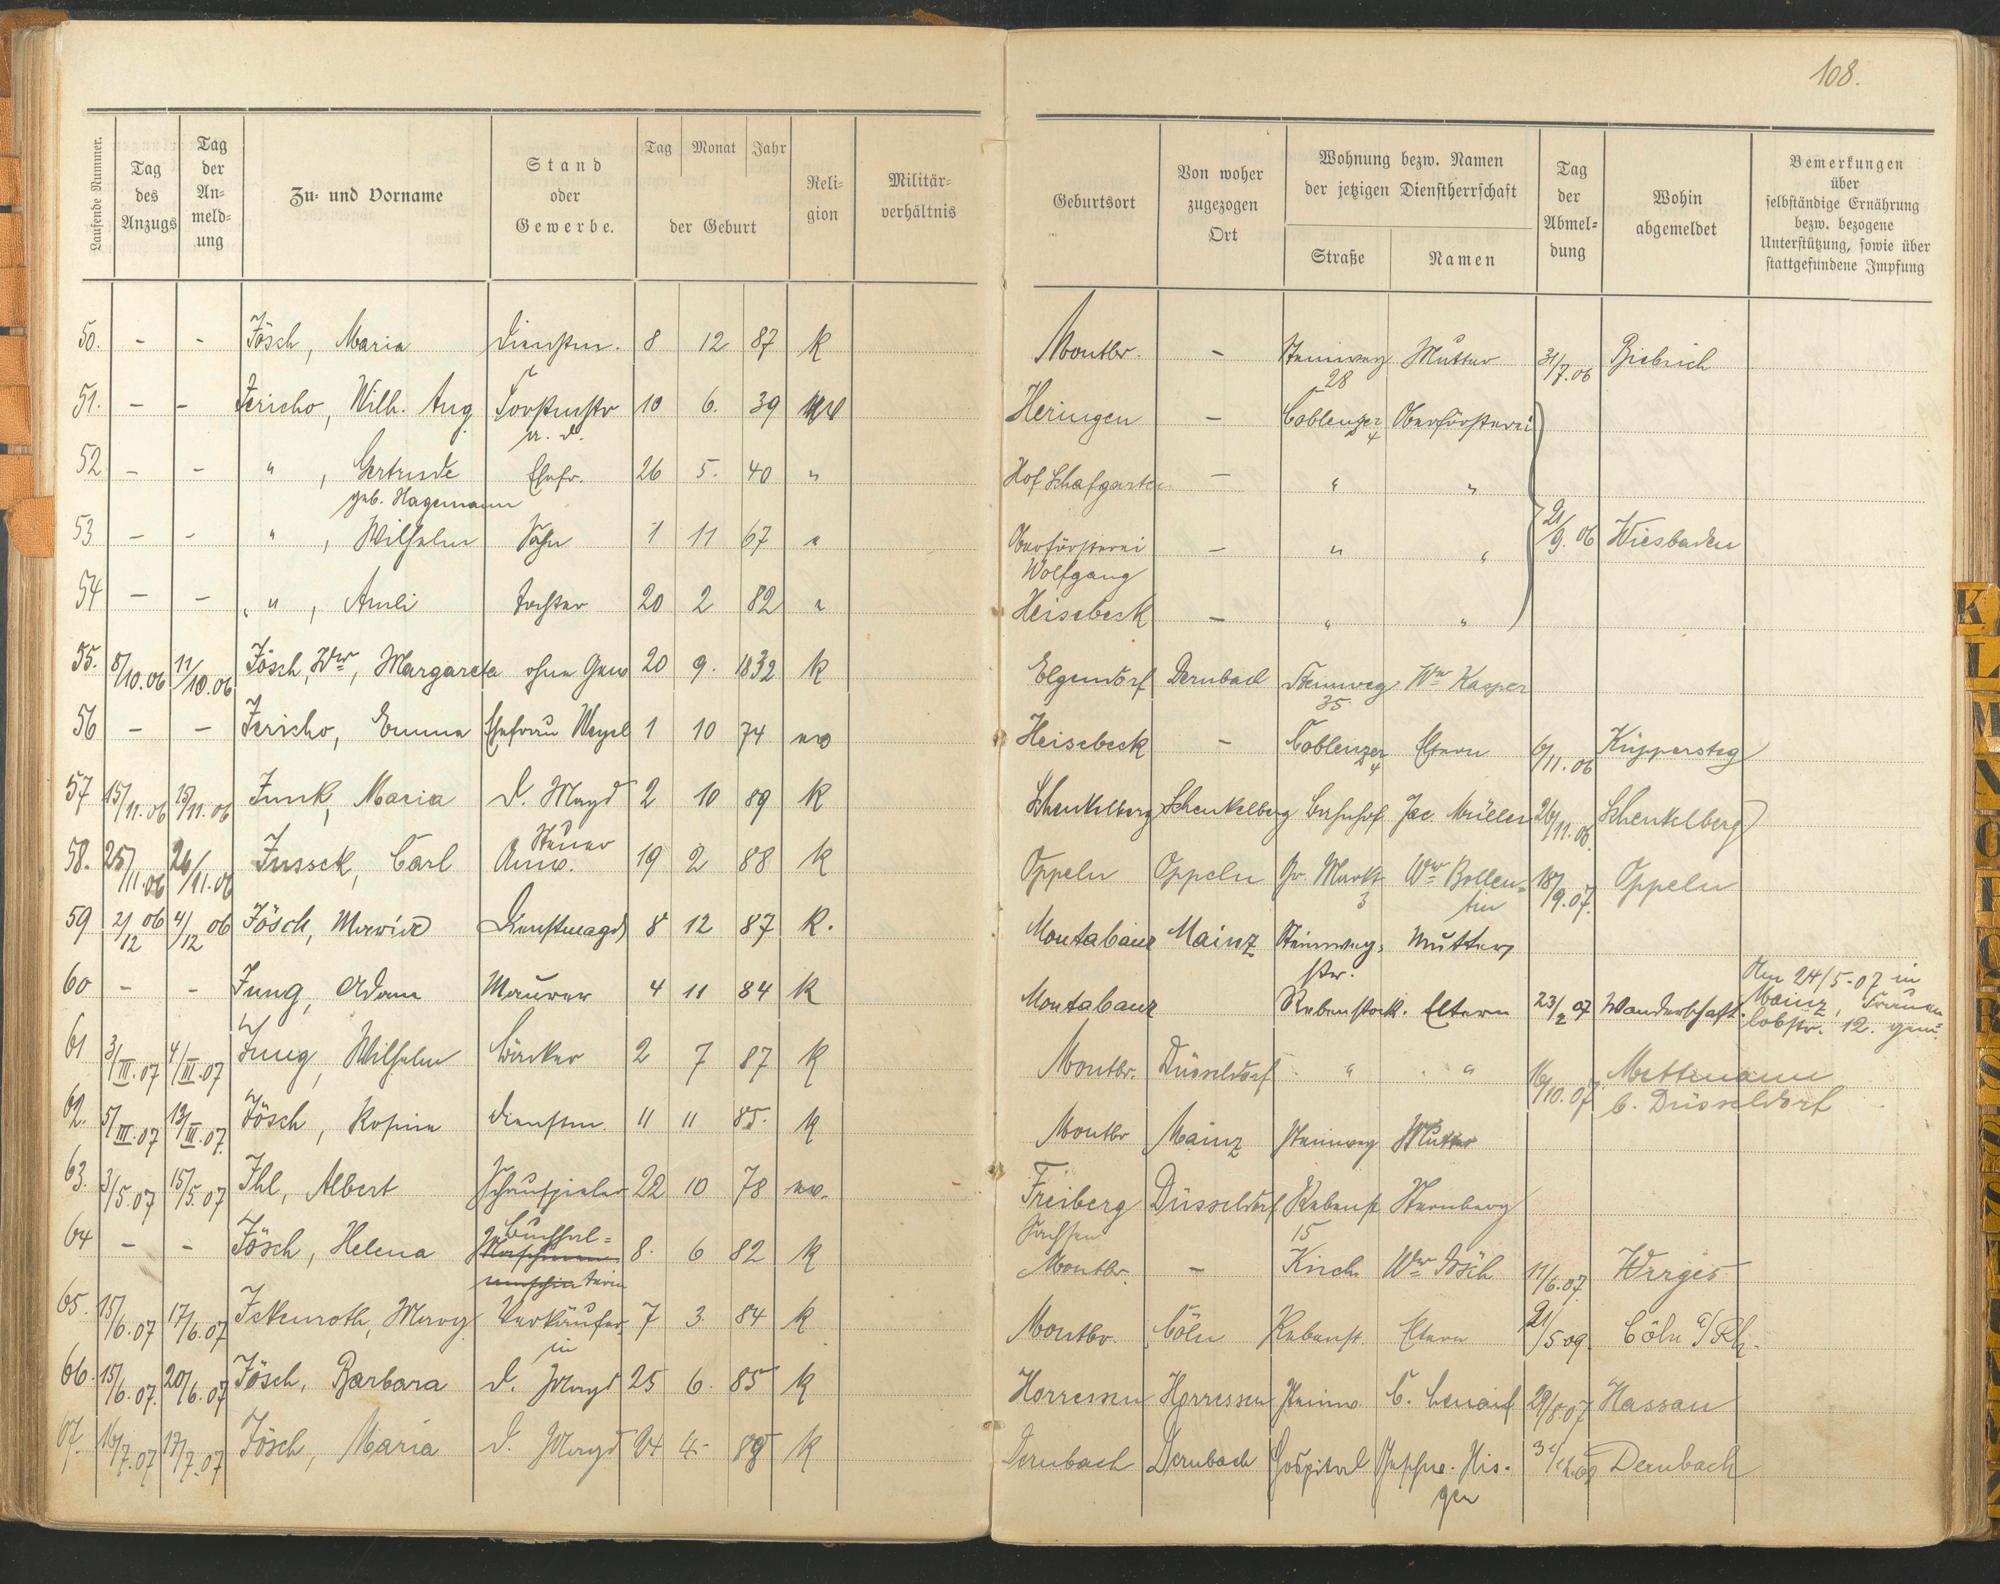 108.
Laufende Nummer. Tag des Anzugs Tag der An- meld- ung Zu- und Vorname Stand oder Gewerbe. Tag Monat Jahr der Geburt Reli- gion Militär- verhältnis Geburtsort Von woher zugezogen Ort Wohnung bezw. Namen der jetzigen Dienstherrschaft Straße Namen Tag der Abmel- dung Wohin abgemeldet Bemerkungen über selbständige Ernährung bezw. bezogene Unterstützung, sowie über stattgefundene Impfung
50. - - Jösch, Maria Dienstm. 8 12 87 K Montbr. - Steinweg 28 Mutter 31/7.06 Biebrich
51. - - Jericho, Wilh. Aug. Forstmstr a. D. 10 6. 39 Heringen - Coblenzer 4 Oberförsterei
52 - - " , Gertrude geb. Hagemann Ehefr. 26 5. 40 " Hof Schafgarten - " "
53 - - " , Wilhelm Sohn 1 11 67 " Oberförsterei Wolfgang - " " 21/9.06 Wiesbaden
54 - - " , Tochter 20 2 82 " Heisebeck - " "
55. 8/10.06 11/10.06 Jösch, Wwe, Margareta ohne Gew 20 9. 1832 K Elgendorf Dernbach Steinweg 35 Wwe Kasper
56 - - Jericho, Emma Ehefrau 1 10 74 ev Heisebeck - Coblenzer 4 Eltern 6/11.06 Küppersteg
57 15/11.06 15/11.06 Junk, Maria D. Magd 2 10 89 K Schenkelberg Schenkelberg Bahnhof Jac. Müller 26/11.06. Schenkelberg
58. 25/11.06 26/11.06 Jussek, Carl Steuer Anw. 19 2 88 K Oppeln Oppeln Gr. Markt 3 Wwe 18/9.07. Oppeln
59 2/12 06 4/12 06 Jösch, Maria Dienstmagd 8 12 87 K. Montabaur Mainz Steinweg- str. Mutter
60 - - Jung, Adam Maurer 4 11 84 K Montabaur Rebenstock. Eltern 23/2 07 Wanderschaft. Am 24/5-07 in Mainz, Frauen lobstr. 12. gem:
61 3/III.07 4/III.07 Jung, Wilhelm Bäcker 2 7 87 K Montbr. Düsseldorf " " 16/10.07. Mettmann b. Düsseldorf
62. 5/III.07 13/III.07. Jösch, Rosina Dienstm. 11 11 85. K Montbr Mainz Steinweg Mutter
63. 3/5.07 15/5.07 Ihl, Albert Schauspieler 22 10 78 ev. Freiberg Sachsen Düsseldorf Rebenst 15 Sternberg
64 - - Jösch, Helena Buchhal= terin 8. 6 82 K Montbr. - Kirch Wwe Jösch 11/6.07. Wirges
65. 15/6.07 17/6.07 Ickenroth, Marg Verkäufer- in 7 3. 84 K Montbr. Cöln Rebenst. Eltern 21/5 09. Cöln a/Rh.
66. 15/6.07. 20/6.07 Jösch, Barbara D. Magd 25 6. 85 K Horressen Horressen Steinw. 29/8 07 Nassau
67. 16/7.07 17/7.07 Jösch, Maria D. Magd 24 4. 89 K Dernbach Dernbach Hospital Geschw. His- gen Dernbach
K L M N O P Q R S